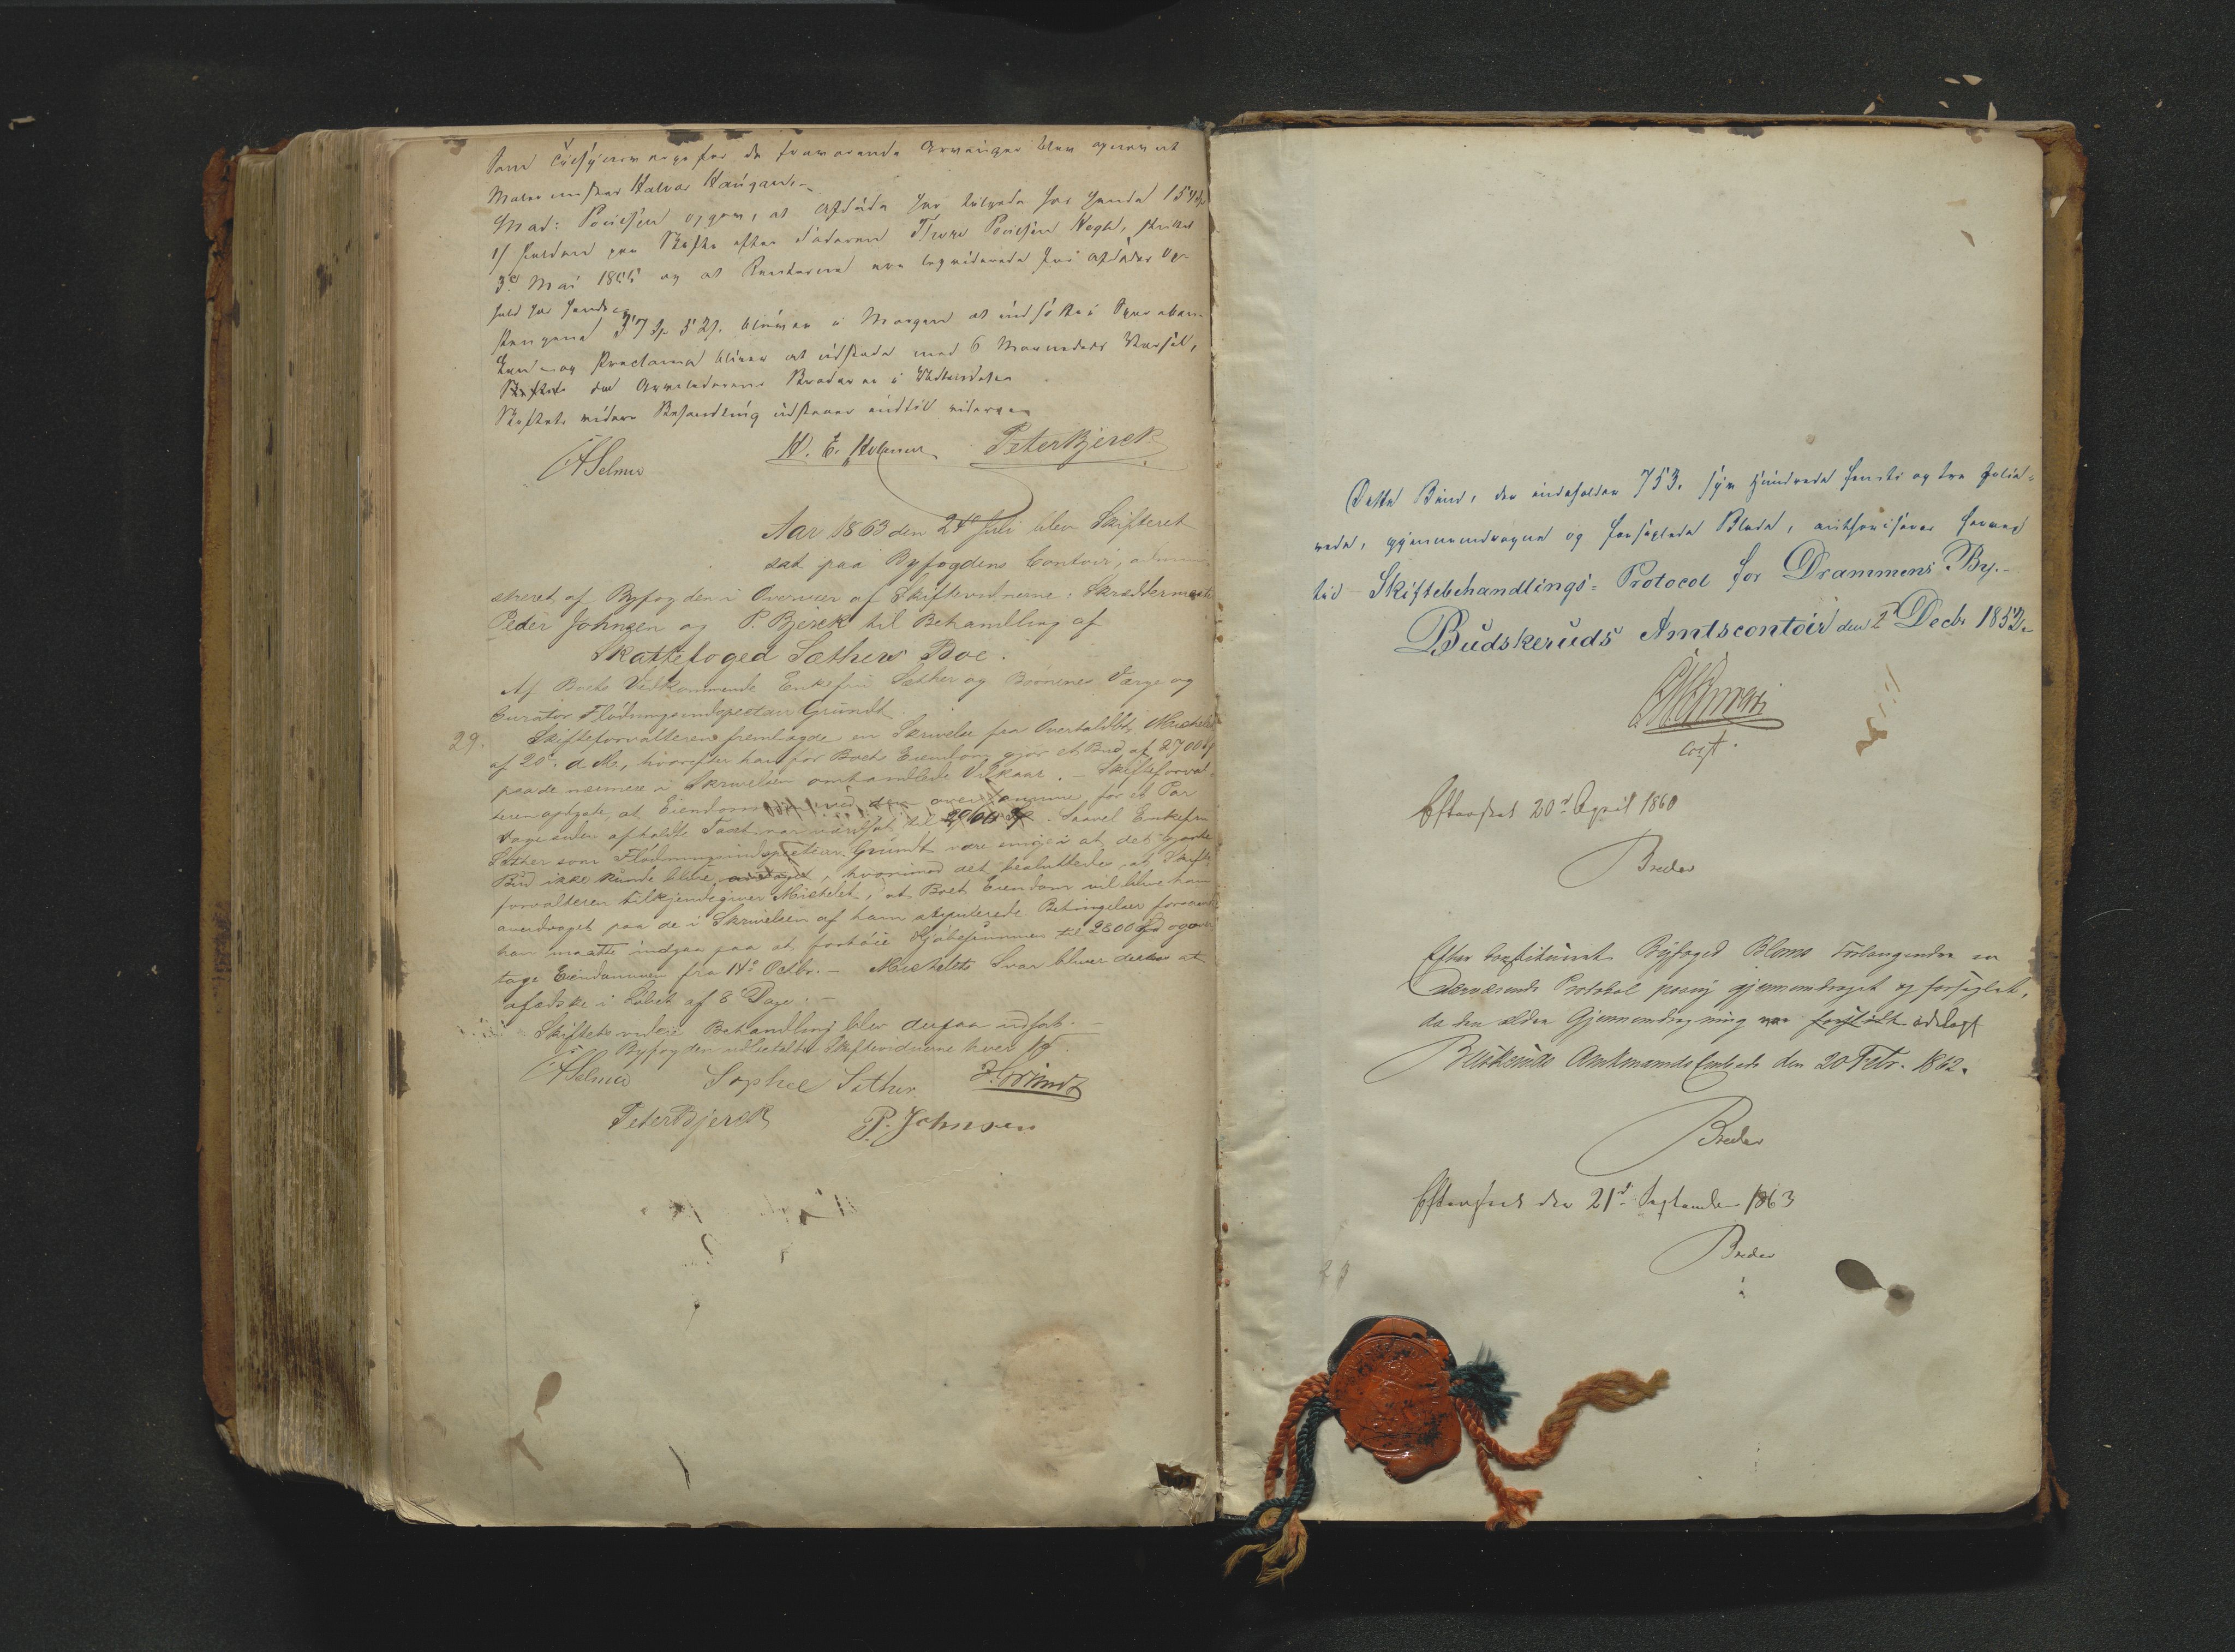 Som
for de fraværende Arvinger blev opnævnt
Malermester Halvor Haugan.
Mad: Poulsen opgav, at Afdøde har tilgode hos hende 154
paa Skifte efter Faderen Thore Poulsen Vegh, sluttet
3d Mai 1855 og at Renterne ere
hold hos hende
Pengene 37 Sp 5 2 s. bliver i Morgen at indsætte i Sparebanken
og Proclama bliver at udstede med 6 Maaneders Varsel,
da Arveladerens Brødre ere i
Skiftets videre Behandling udstaaer indtil videre.
CASelmer H. E. Holmen Peter Bjerck
Aar 1863 den 24de Juli blev Skifteret
sat paa Byfogdens Contoir, admini
streret af Byfogden i Overvær af Skiftevidnerne: Skræddermester
Peder Johnsen og P. Bjerck til Behandling af
Skattefoged Sæthers Boe.
Af Boets Vedkommende Enkefru Sæther og Børnenes Værge og
Curator Flødningsinspecteur Gründt.
29.
Skifteforvalteren fremlagde en Skrivelse fra Overtoldbt. Michelet
af 20de d. M., hvorefter han for Boets Eiendom gjør et Bud af 2700 Sp
paa de nærmere i Skrivelsen omhandlede Vilkaar. – Skifteforval-
teren oplyste, at Eiendommen ved den over samme for et Par
Dage siden afholdte Taxt var værdsat til Sp. Saavel Enkefru
Sæther som Flødningsinspecteur Gründt vare enige i at det gjorte
Bud ikke kunde blive antaget, hvorimod det besluttedes at Skifte-
forvalteren tilkjendegiver Michelet, at Boets Eiendom vil blive ham
overdraget paa de i Skrivelsen af ham stipulerede Betingelser forsaavidt
han maatte indgaa paa at forhøie Kjøbesummen til 2800 Spd og over-
tage Eiendommen fra 14de Octbr. – Michelets Svar bliver derhos at
afæske i Løbet af 8 Dage. –
Skiftets videre Behandling blev derpaa udsat. –
Byfogden udbetalte Skiftevidnerne hver 1
CASelmer Sophie Sæther H. Gründt
Peter Bjerck P. Johnsen
Dette Bind, der indeholder 753, syv Hundrede femti og tre folie-
rede, gjennemdragne og forseglede Blade, authoriseres herved
til Skiftebehandlings-Protocol for Drammens By.
Budskeruds Amtscontoir den 2d Decbr 1852.
const.
Efterseet 20d April 1860
Breder
Efter constitueret Byfoged Bloms Forlangende er
nærværende Protokol paany gjennemdraget og forseglet,
da den ældre Gjennemdragning var forslidt ødelagt
Buskeruds Amtmands Embede den 20 Febr. 1862.
Breder
Efterseet den 21d September 1863
Breder